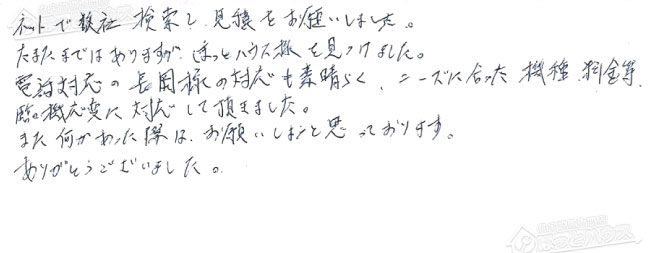 ネットで数社 検索し 見積をお願いしました。
たまたまではありますが、ほっとハウス様を見つけました。
電話対応の長岡様の対応も素晴らく、ニーズに合った機種、料金等、
臨機応変に対応して頂きました。
また何かあった際は、お願いしようと思っております。
ありがとうございました。
ほっとハウス